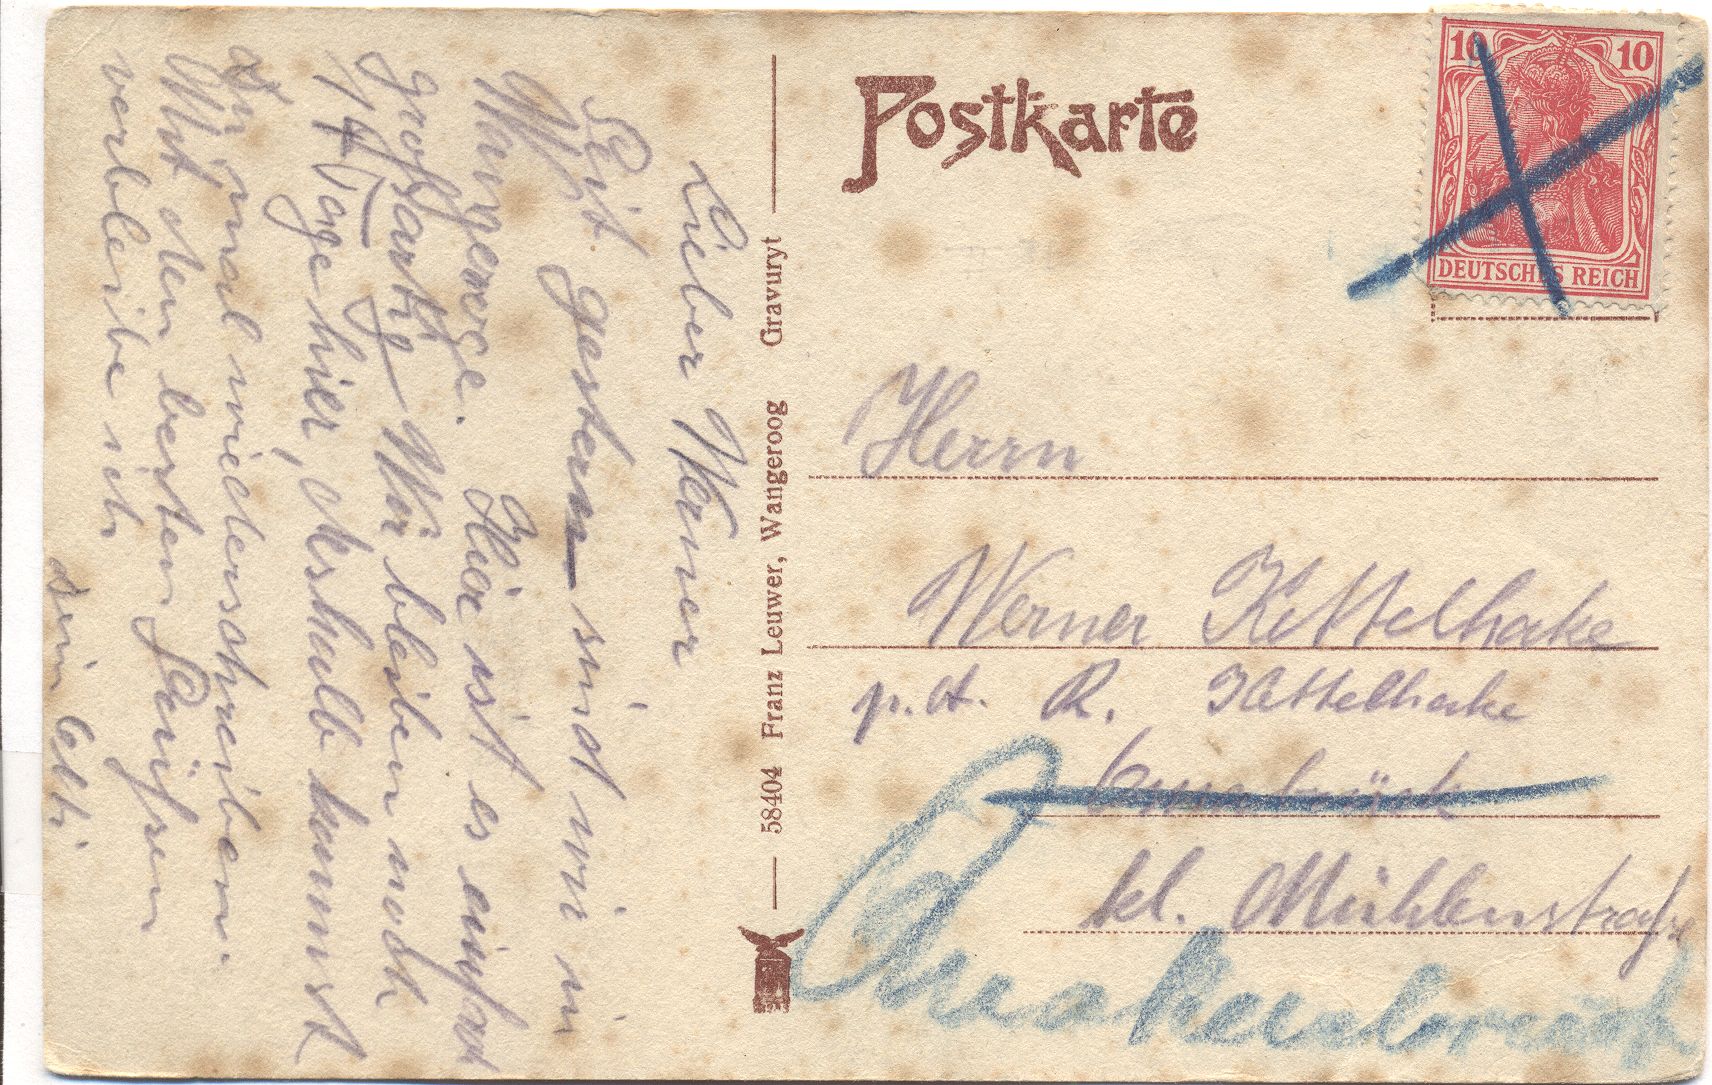 Postkarte
10 10
DEUTSCHES REICH
Herrn
Werner Kettelhake
p. A. R. Kettelhake
Osnabrück
kl. Mühlenstraße
Quakenbrück
58404 Franz Leuwer, Wangeroog Gravuryt
Lieber Werner
Seit gestern sind wir in
Wangeroge. Hier ist es einfach
großartig Wir bleiben noch
14 Tage hier, deshalb kannst
Du mal wiederschreiben.
Mit den besten Grüßen
verbleibe ich
dein